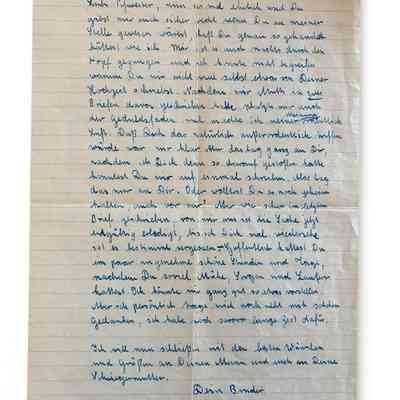 Liebe Schwester, nun sei mal ehrlich und Du
gibst mir auch sicher recht wenn Du an meiner
Stelle gewesen wärst, daß Du genau so gehandelt
hättest wie ich. Mir ist es auch nachts durch den
Kopf gegangen und ich konnte nicht begreifen
warum Du mir nicht mal selbst etwas von Deiner
Hochzeit schreibst. Nachdem mir Mutti in zwei
Briefen davon geschrieben hatte, platzte mir auch
der Geduldsfaden und machte ich meiner
Luft. Daß Dich das natürlich außerordentlich treffen
würde war mir klar. Aber das lag ganz an Dir
nachdem ich Dich denn so darauf gestoßen hatte
konntest Du mir auf einmal schreiben. Also lag
das nur an Dir. Oder wolltest Du es auch geheim
halten, auch vor mir? Aber wie schon im letzten
Brief geschrieben von mir aus ist die Sache jetzt
endgültig erledigt, bis ich Dich mal wiedersehe
ist es bestimmt vergessen. Hoffentlich hattest Du
ein paar angenehme schöne Stunden und Tage,
nachdem Du soviel Mühe, Sorgen und Laufen
hattest. Ich könnte mir ganz gut so etwas vorstellen.
Aber ich persönlich trage mich noch nicht mit solchen
Gedanken, ich habe noch lange Zeit dafür.
Ich will nun schließen mit den besten Wünschen
und Grüßen an Deinen Mann und auch an Deine
Schwiegermutter.
Dein Bruder